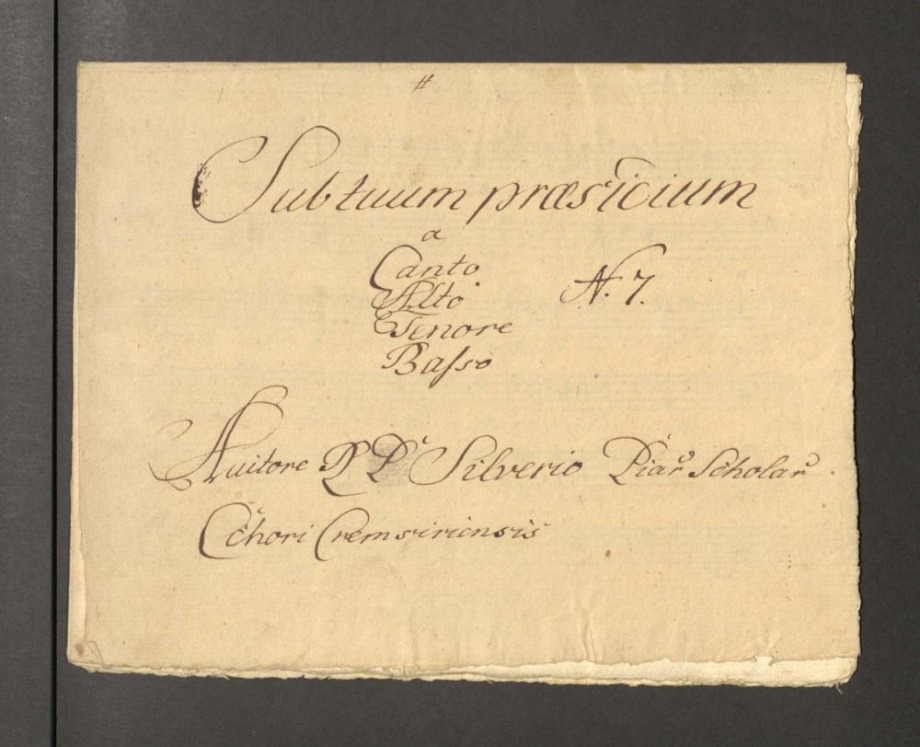 #
Sub tuum præsicium
a
Canto
Alto
N. 7.
Tenore
Basso
Auitore R P Silverio Piar Scholar
Chori Cremsiriensis